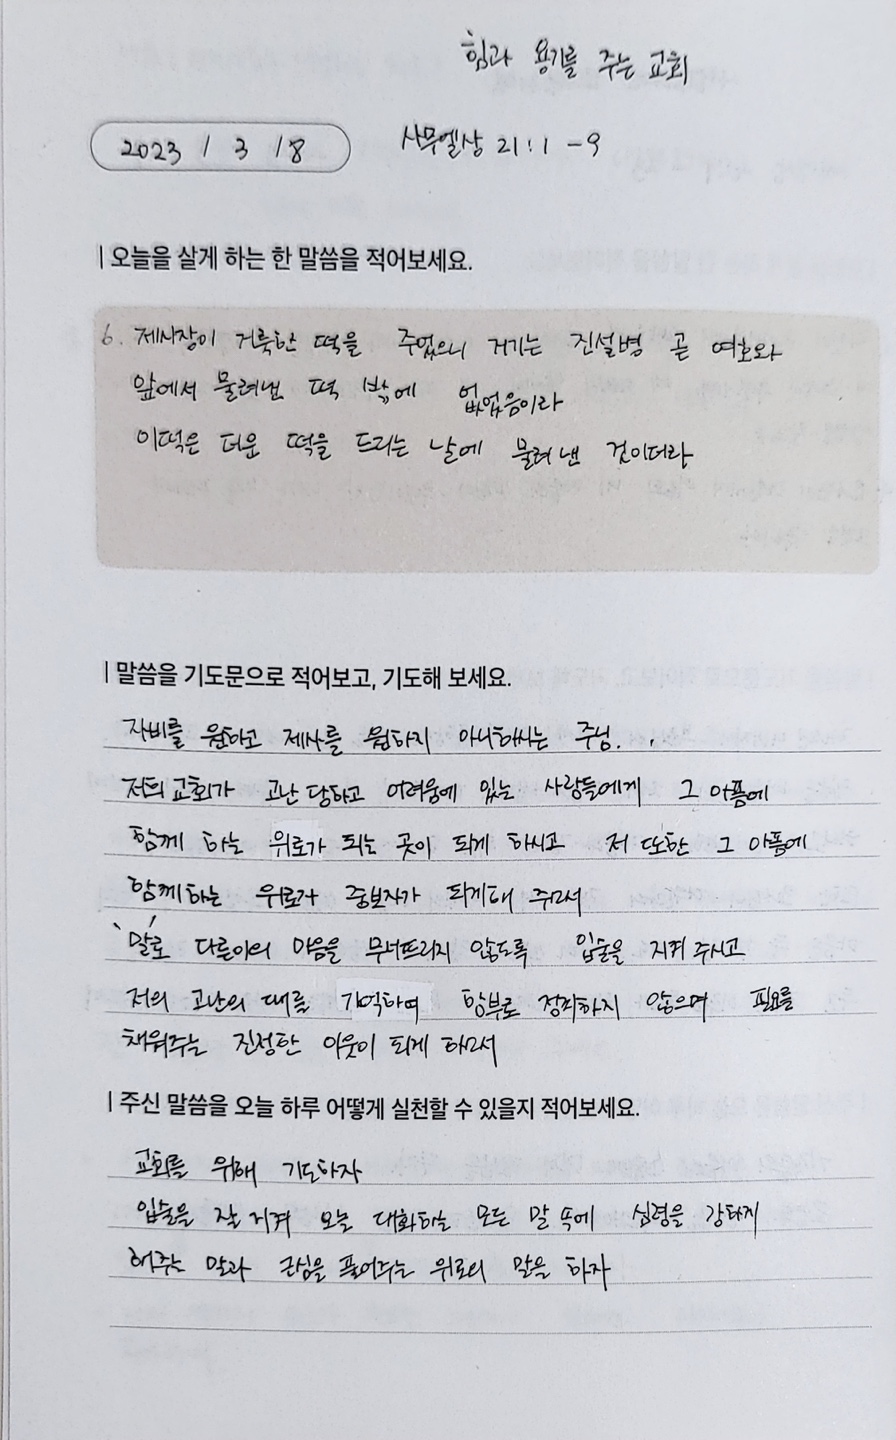 힘과 용기를 주는 교회
2023 / 3 / 8
사무엘상 21:1 -9
| 오늘을 살게 하는 한 말씀을 적어보세요.
6. 제사장이 거룩한 떡을 주었으니 거기는 진설병 곧 여호와
앞에서 물려낸 떡 밖에 없었음이라
이떡은 더운 떡을 드리는 날에 물려 낸 것이더라
| 말씀을 기도문으로 적어보고, 기도해 보세요.
자비를 원하고 제사를 원하지 아니하시는 주님..
저희 교회가 고난 당하고 어려움에 있는 사람들에게 그 아픔에
함께 하는 위로가 되는 곳이 되게 하시고 저 또한 그 아픔에
함께하는 위로자 중보자가 되게해 주소서
'말'로 다른이의 마음을 무너뜨리지 않도록 입술을 지켜 주시고
저의 고난의 때를 기억하여 함부로 정죄하지 않으며 필요를
채워주는 진정한 이웃이 되게 하소서
| 주신 말씀을 오늘 하루 어떻게 실천할 수 있을지 적어보세요.
교회를 위해 기도하자
입술을 잘 지켜 오늘 대화하는 모든 말 속에 심령을 강하게
해주는 말과 근심을 풀어주는 위로의 말을 하자